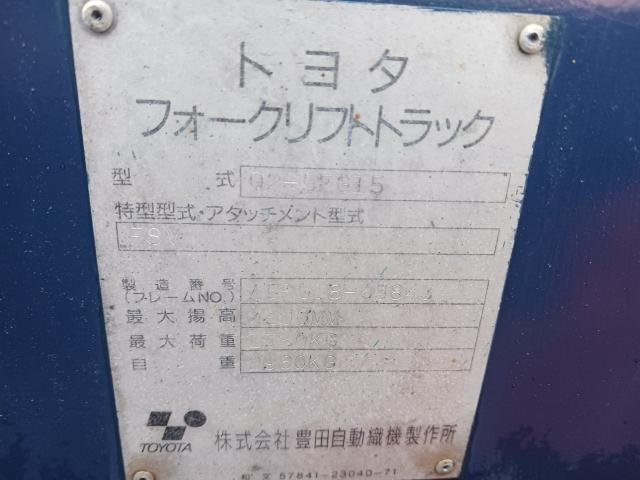 トヨタ
フォークリフトトラック
型式
特型型式・アタッチメント型式
FS
製造番号
(フレームNO.)
最大揚高
最大荷重
自重
TOYOTA
株式会社豊田自動織機製作所
和文 57841-23040-71